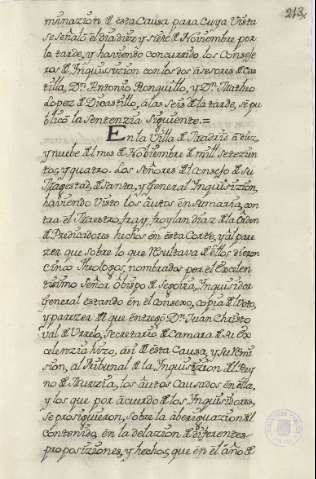 213.
minazion de esta Causa, para cuya Vista
se señaló el dia diez y siete de Noviembre por
la tarde, y haviendo concurrido los Conseje
ros de Inquissizion con los dos Asesores de Cas
tilla, Dn. Antonio Ronquillo, y Dn. Matheo
Lopez de Dicastillo, a las seis de la tarde, se pu
blicó la Sentenzia siguiente.=
En la Villa de Madrid a diez
y nuebe del mes de Nobiembre de mill setezien
tos, y quatro. Los Señores del Consejo de su
Magestad, de Santa, y General Inquisizion,
haviendo Visto los autos en sumaria, con
tra el Maestro, fray, froylan diaz de la Orden
de Predicadores hechos en esta Corte, y al pare
zer que sobre lo que Resultava de ellos dieron
cinco Theologos, nombrados por el Excelen
tissimo Señor Obispo de Segovia, Inquisidor
General estando en el Consexo, copia del Voto,
y parezer de que entregó Dn. Juan Christo
val de Varelo, Secretario de Camara de su Ex
celenzia hizo, asi de esta Causa, y su Remi
sion, al Tribunal de la Inquisizion del Rey
no de Murzia, los autos Causados en ella,
y los que por acuerdo de los Inquisidores,
se prosiguieron, sobre la aberiguazion del
contenido, en la delazion de diferentes
proposiziones, y hechos, que en el año de